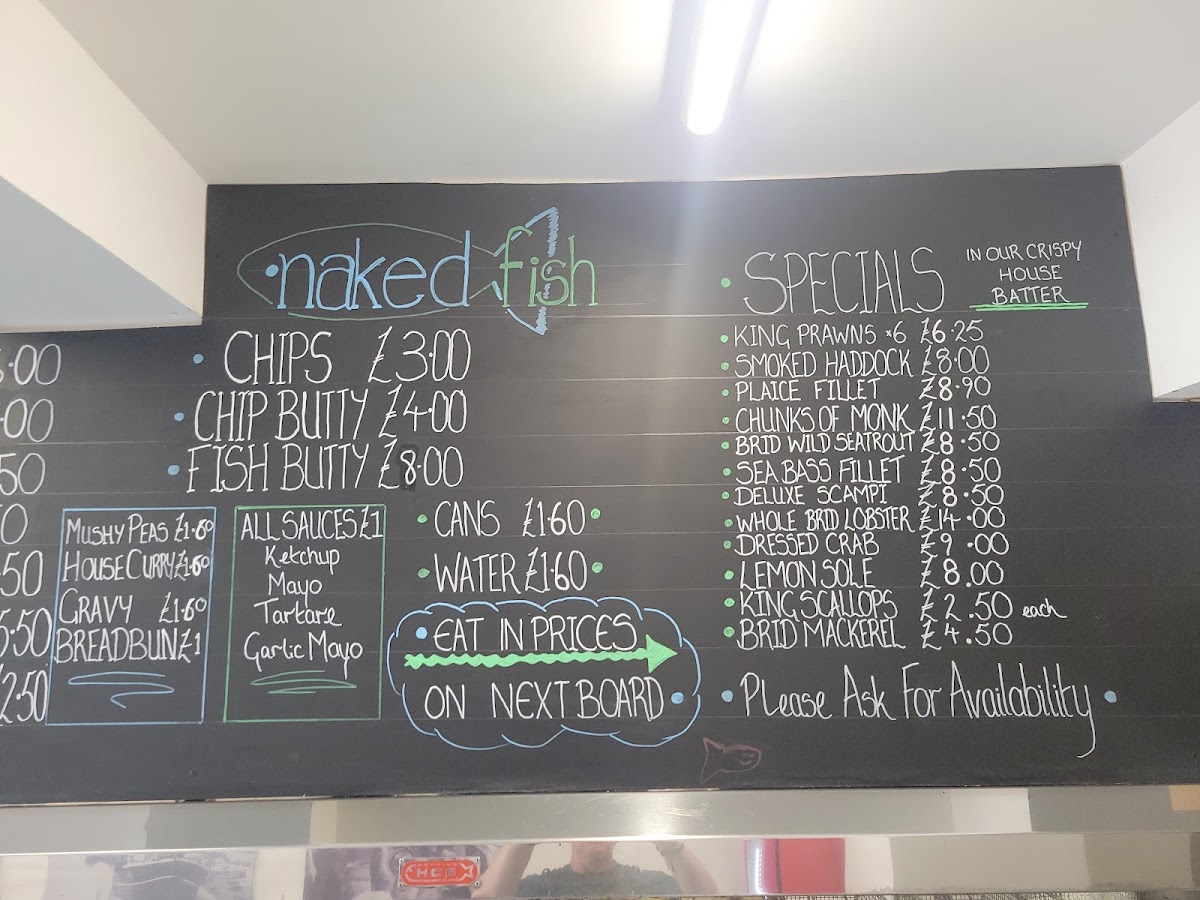 naked fish
CHIPS £3.00
CHIP BUTTY £4.00
FISH BUTTY £8.00
MUSHY PEAS £1.60
HOUSE CURRY £1.60
GRAVY £1.60
BREADBUN £1
ALL SAUCES £1
Ketchup
Mayo
Tartare
Garlic Mayo
CANS £1.60
WATER £1.60
EAT IN PRICES
ON NEXT BOARD
SPECIALS
IN OUR CRISPY
HOUSE
BATTER
KING PRAWNS x6 £6.25
SMOKED HADDOCK £8.00
PLAICE FILLET £8.90
CHUNKS OF MONK £11.50
BRID WILD SEATROUT £8.50
SEA BASS FILLET £8.50
DELUXE SCAMPI £8.50
WHOLE BRID LOBSTER £14.00
DRESSED CRAB £9.00
LEMON SOLE £8.00
KING SCALLOPS £2.50 each
BRID MACKEREL £4.50
Please Ask For Availability